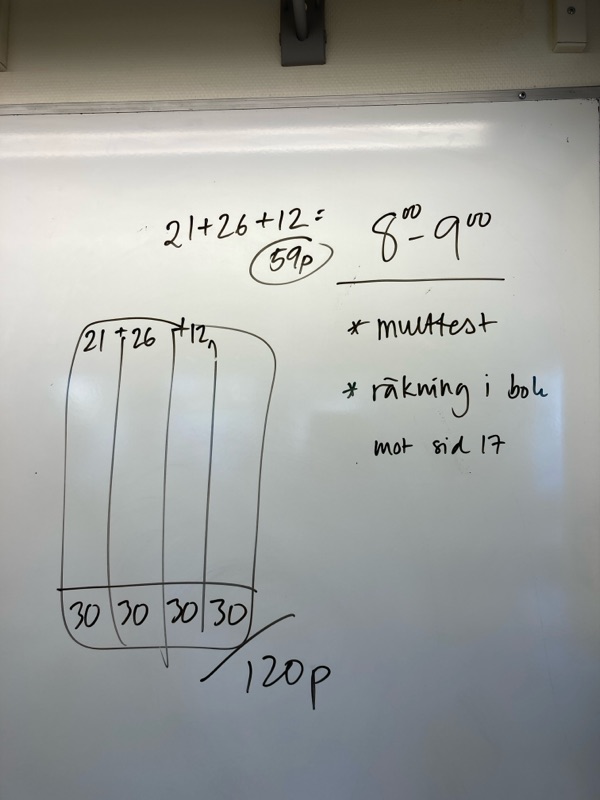 21+26+12=
59p
8⁰⁰-9⁰⁰
* multtest
* räkning i bok
mot sid 17
21 + 26 +12
30 30 30 30
/120p